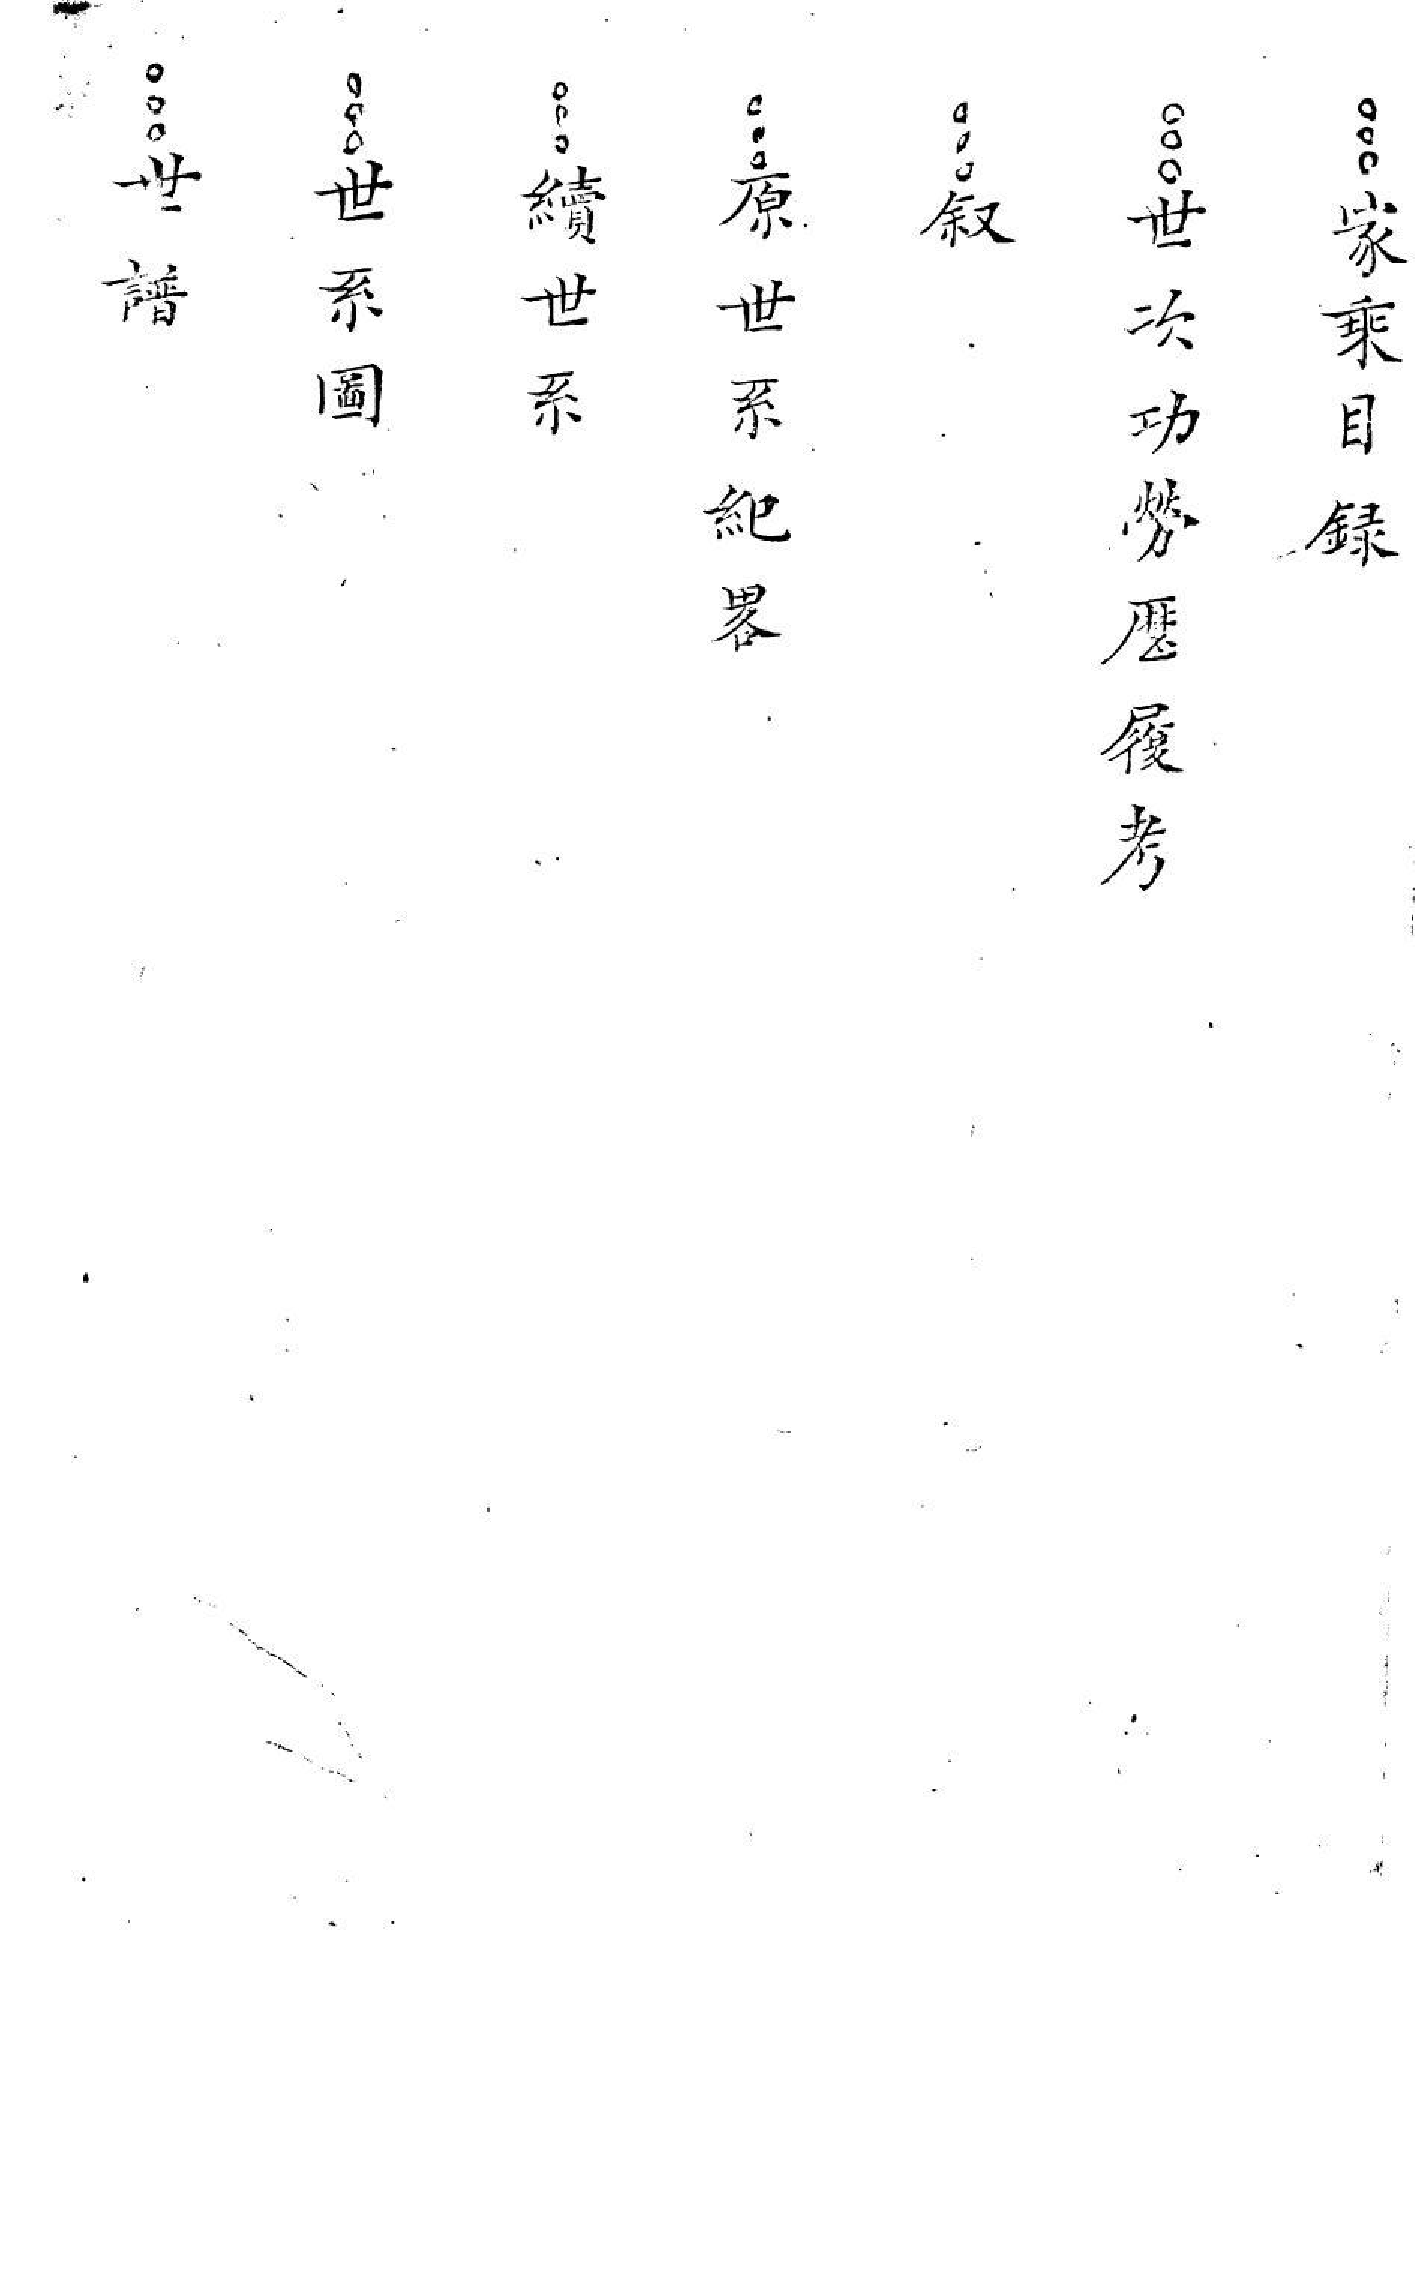 ○○○家乘目録
○○○世次功勞歷履考
○○○叙
○○○原世系紀畧
○○○續世系
○○○世系圖
○○○世譜